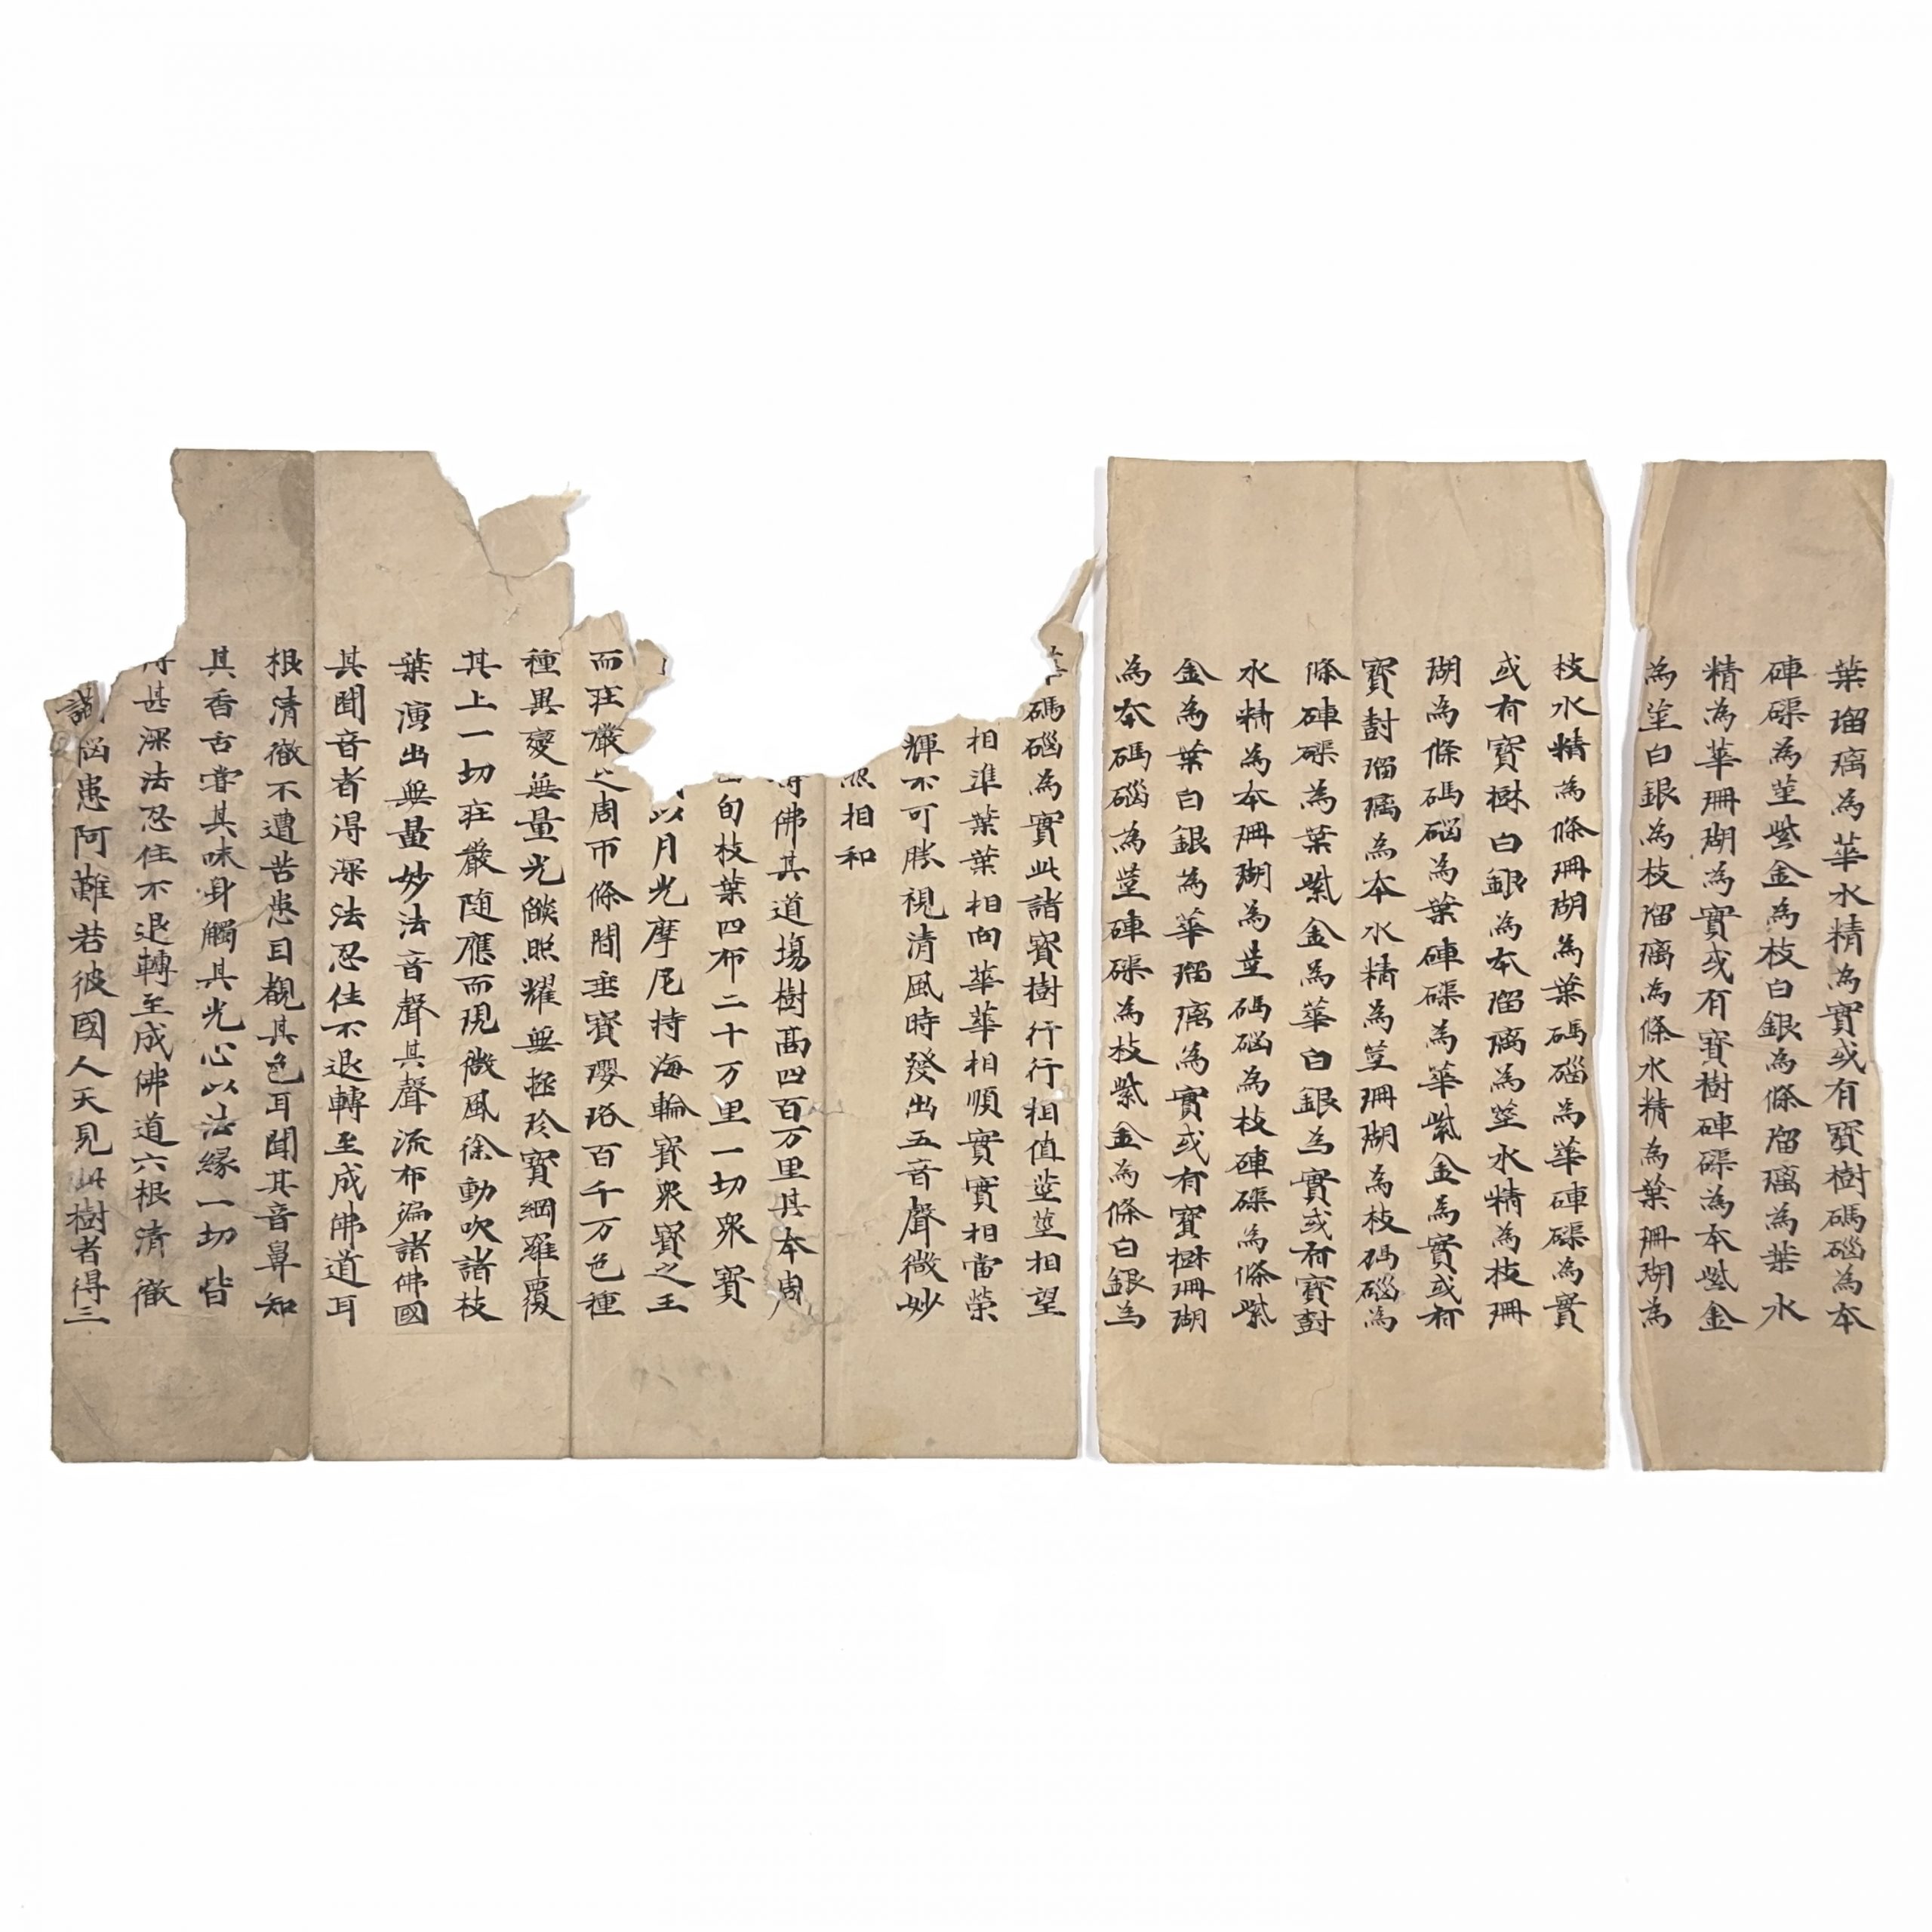 葉瑠璃為華水精為實或有寶樹碼碯為本
硨磲為莖紫金為枝白銀為條瑠璃為葉水
精為華珊瑚為實或有寶樹硨磲為本紫金
為莖白銀為枝瑠璃為條水精為葉珊瑚為
枝水精為條珊瑚為葉碼碯為華硨磲為實
或有寶樹白銀為本瑠璃為莖水精為枝珊
瑚為條碼碯為葉硨磲為華紫金為實或有
寶樹瑠璃為本水精為莖珊瑚為枝碼碯為
條硨磲為葉紫金為華白銀為實或有寶樹
水精為本珊瑚為莖碼碯為枝硨磲為條紫
金為葉白銀為華瑠璃為實或有寶樹珊瑚
為本碼碯為莖硨磲為枝紫金為條白銀為
碼碯為實此諸寶樹行行相值莖莖相望
相準葉葉相向華華相順實實相當榮
輝不可勝視清風時發出五音聲微妙
相和
佛其道場樹高四百万里其本周
旬枝葉四布二十万里一切眾寶
以月光摩尼持海輪寶眾寶之王
而莊嚴之周帀條間垂寶瓔珞百千万色種
種異變無量光燄照耀無極珍寶網羅覆
其上一切莊嚴隨應而現微風徐動吹諸枝
葉演出無量妙法音聲其聲流布遍諸佛國
其聞音者得深法忍住不退轉至成佛道耳
根清徹不遭苦患目覩其色耳聞其音鼻知
其香舌嘗其味身觸其光心以法緣一切皆
得甚深法忍住不退轉至成佛道六根清徹
惱患阿難若彼國人天見此樹者得三